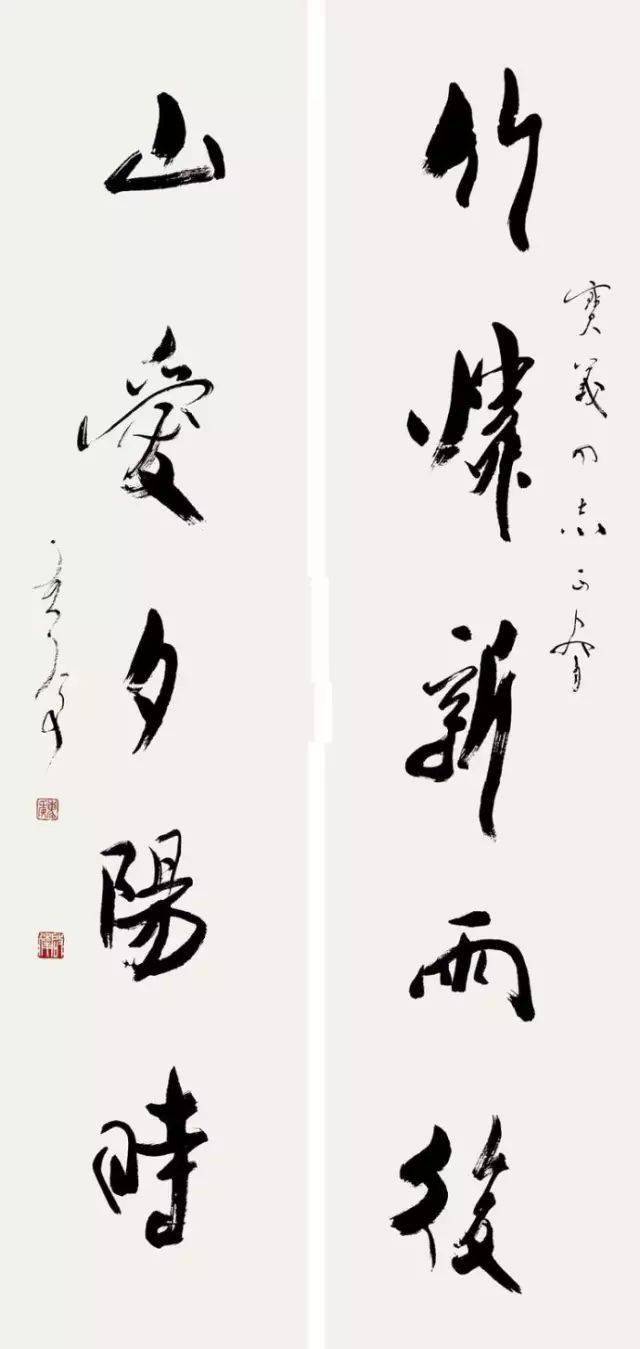 竹憐新雨後
寶義同志正腕
山愛夕陽時